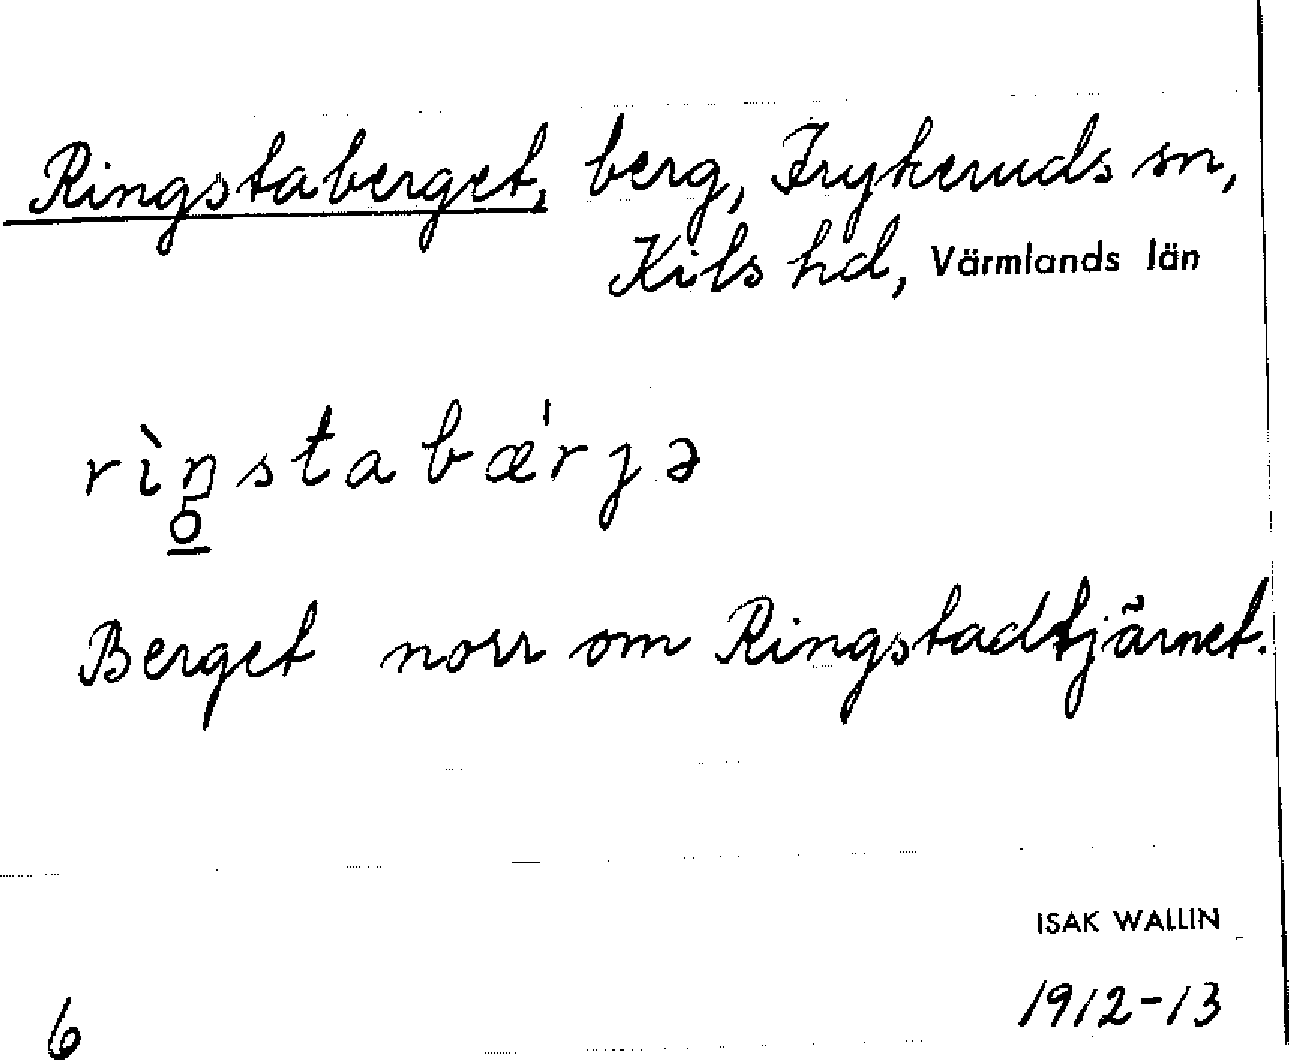 Ringstaberget, berg, Frykeruds sn,
Kils hd, Värmlands län
rìn̥stabæ'rjə
Berget norr om Ringstadtjärnet.
ISAK WALLIN
1912-13
6